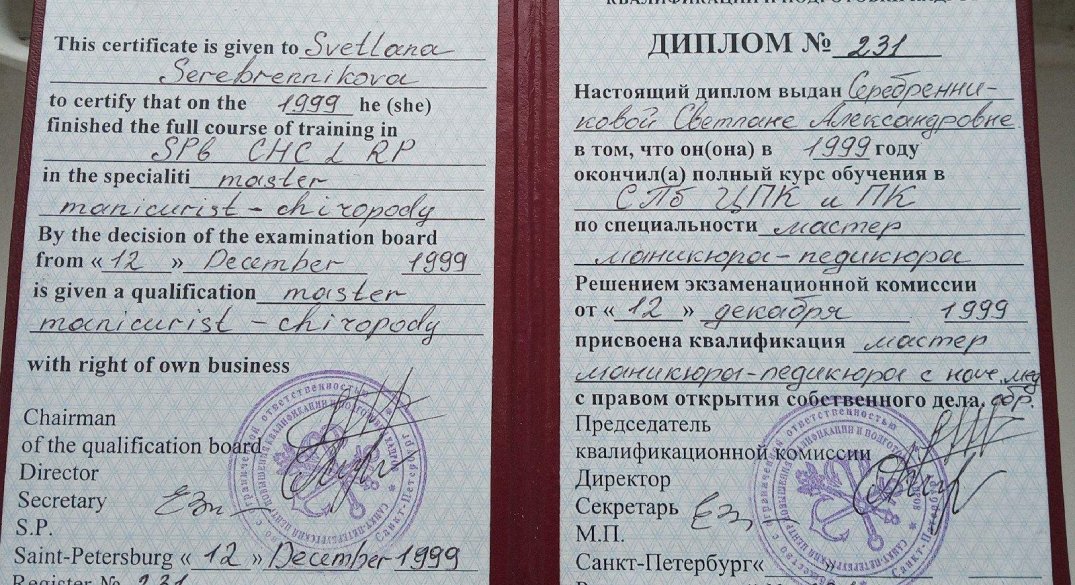 This certificate is given to Svetlana
Serebrennikova
to certify that on the 1999 he (she)
finished the full course of training in
SPb CHC & RP
in the specialiti master
manicurist - chiropody
By the decision of the examination board
from «12» December 1999
is given a qualification master
manicurist - chiropody
with right of own business
Chairman
of the qualification board
Director
Secretary
S.P.
Saint-Petersburg «12» December 1999
Register № 231
КВАЛИФИКАЦИИ И ПОДГОТОВКИ КАДРОВ
ДИПЛОМ № 231
Настоящий диплом выдан Серебренни-
ковой Светлане Александровне
в том, что он(она) в 1999 году
окончил(а) полный курс обучения в
СПб ЦПК и ПК
по специальности мастер
маникюра-педикюра
Решением экзаменационной комиссии
от «12» декабря 1999
присвоена квалификация мастер
маникюра-педикюра с нач. мед
с правом открытия собственного дела. обр.
Председатель
квалификационной комиссии
Директор
Секретарь
М.П.
Санкт-Петербург« »